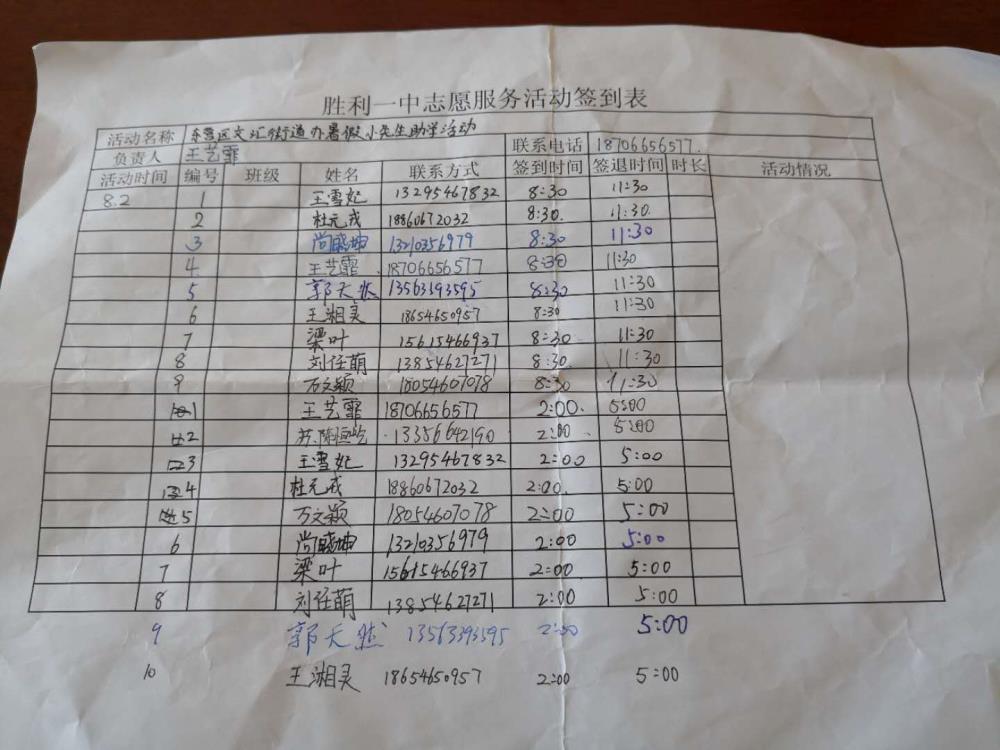 胜利一中志愿服务活动签到表
活动名称 东营区文汇街道办暑假小先生助学活动 联系电话 18706656577.
负责人 王艺霏
活动时间 编号 班级 姓名 联系方式 签到时间 签退时间 时长 活动情况
8.2 1 王雪妃 13295467832 8:30 11:30
2 杜元戎 18860672032 8:30. 11:30.
3 尚晓坤 13210356979 8:30 11:30
4 王艺霏 18706656577 8:30 11:30
5 郭天 13563393595 8:30 11:30
6 王湘灵 18654650957 8:30 11:30
7 梁叶 15615466937 8:30 11:30
8 刘任萌 13854627271 8:30 11:30
9 万文颖 18054607078 8:30 11:30
1 王艺霏 18706656577 2:00. 5:00
2 苏陈 13356642190 2:00 5:00
3 王雪妃 13295467832 2:00 5:00
4 杜元戎 18860672032 2:00. 5:00
5 万文颖 18054607078 2:00 5:00
6 尚晓坤 13210356979 2:00 5:00
7 梁叶 15615466937 2:00 5:00
8 刘任萌 13854627271 2:00 5:00
9 郭天 13563393595 2:00 5:00
10 王湘灵 18654650957 2:00 5:00